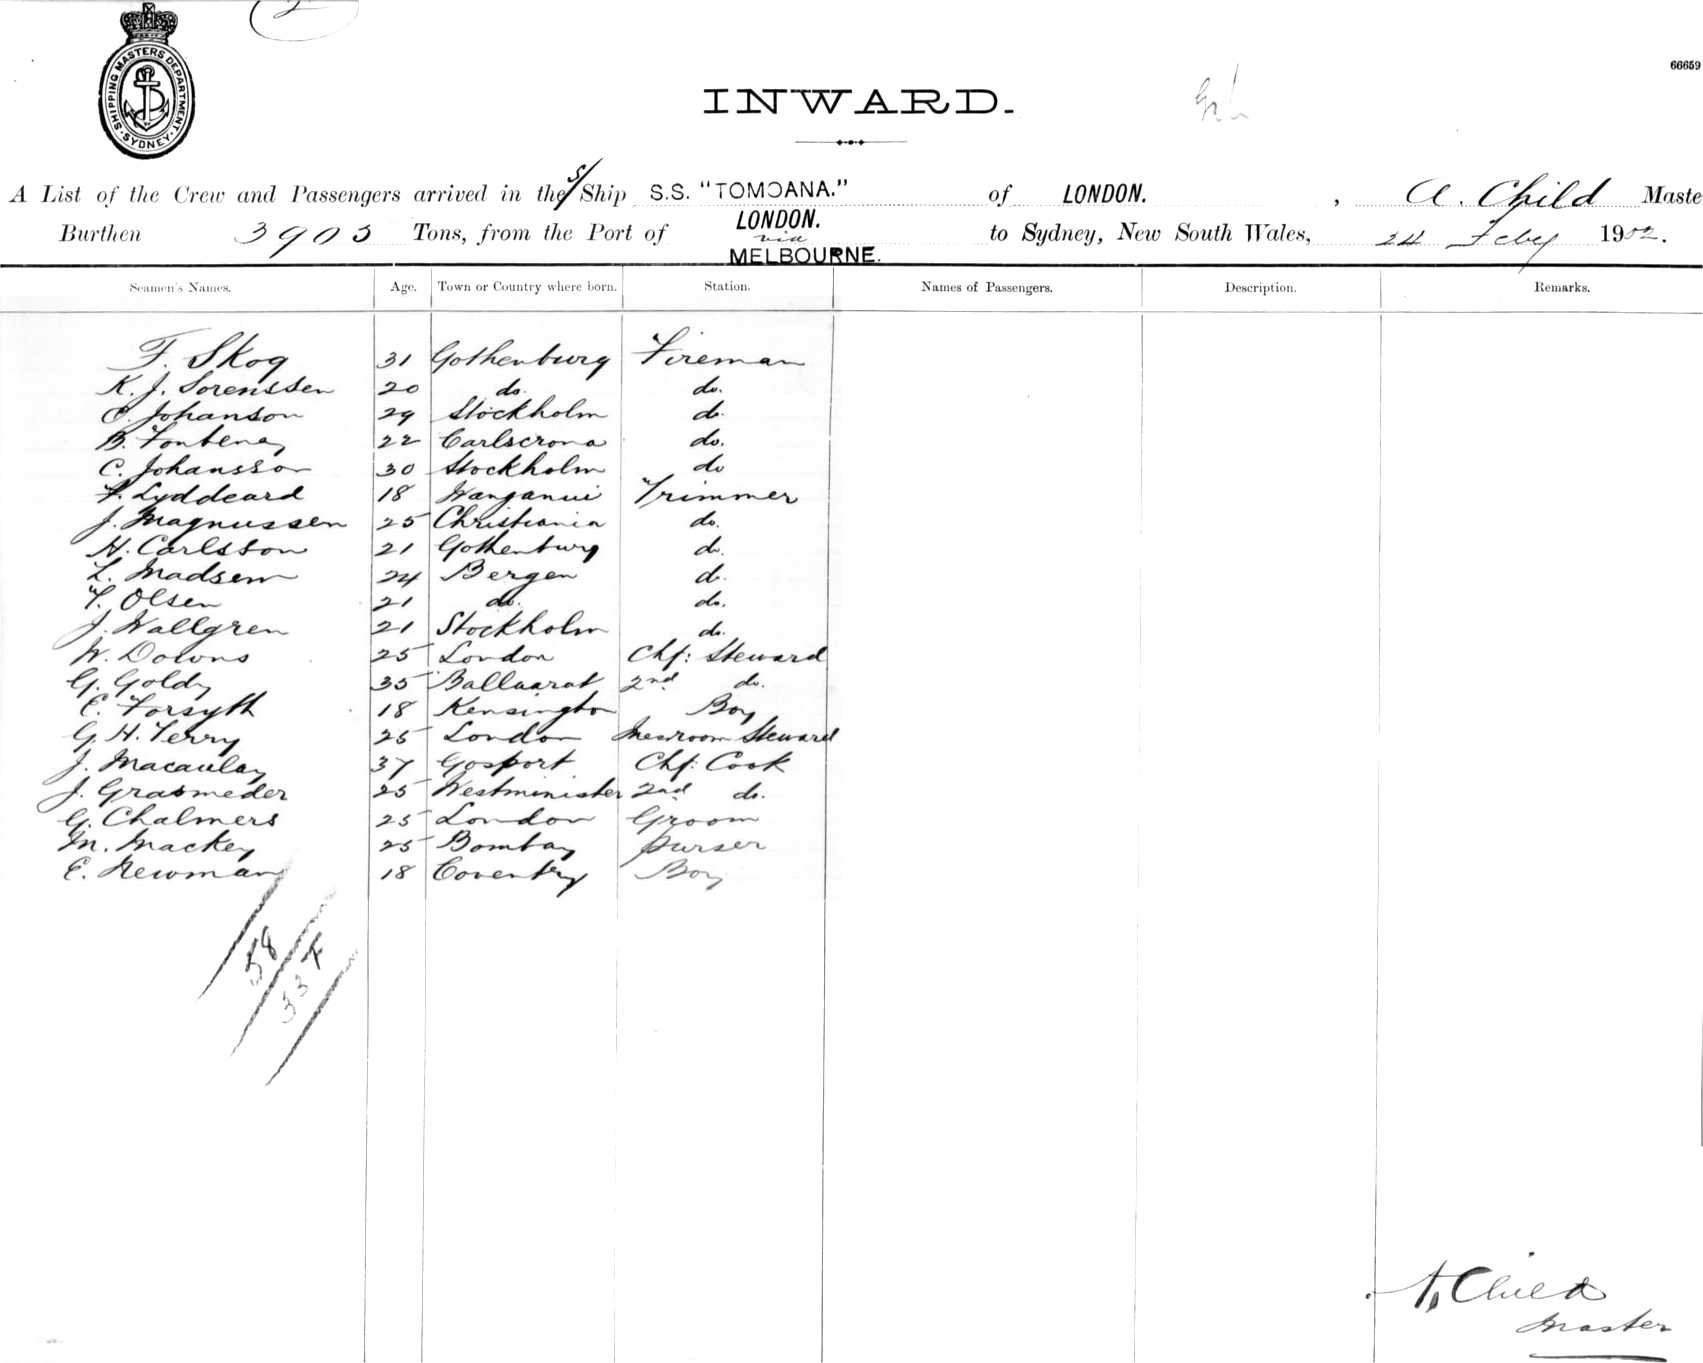 2
SHIPPING MASTERS DEPARTMENT
SYDNEY
66659
INWARD.
A List of the Crew and Passengers arrived in the S/Ship S.S. "TOMOANA." of LONDON. , A. Child Maste
Burthen 3903 Tons, from the Port of LONDON. via MELBOURNE. to Sydney, New South Wales, 24 Feby 1902.
Seamen's Names. Age. Town or Country where born. Station. Names of Passengers. Description. Remarks.
F. Skog 31 Gothenburg Fireman
K. J. Sorenssen 20 do. do.
C. Johanson 29 Stockholm do.
B. Fontenay 22 Carlscrona do.
C. Johansson 30 Stockholm do
F. Lyddeard 18 Wanganui Trimmer
J. Magnussen 25 Christiania do.
H. Carlsson 21 Gothenburg do.
L. Madsen 24 Bergen do.
T. Olsen 21 do. do.
J. Wallgren 21 Stockholm do.
W. Downs 25 London Chf: Steward
G. Goldy 35 Ballaarat 2nd do.
C. Forsyth 18 Kensington Boy
G. H. Terry 25 London Messroom Steward
J. Macaulay 37 Gosport Chf: Cook
J. Grasmeder 25 Westminister 2nd do.
G. Chalmers 25 London Groom
M. Mackey 25 Bombay Purser
E. Newman 18 Coventry Boy
58
33 F
A. Child
Master